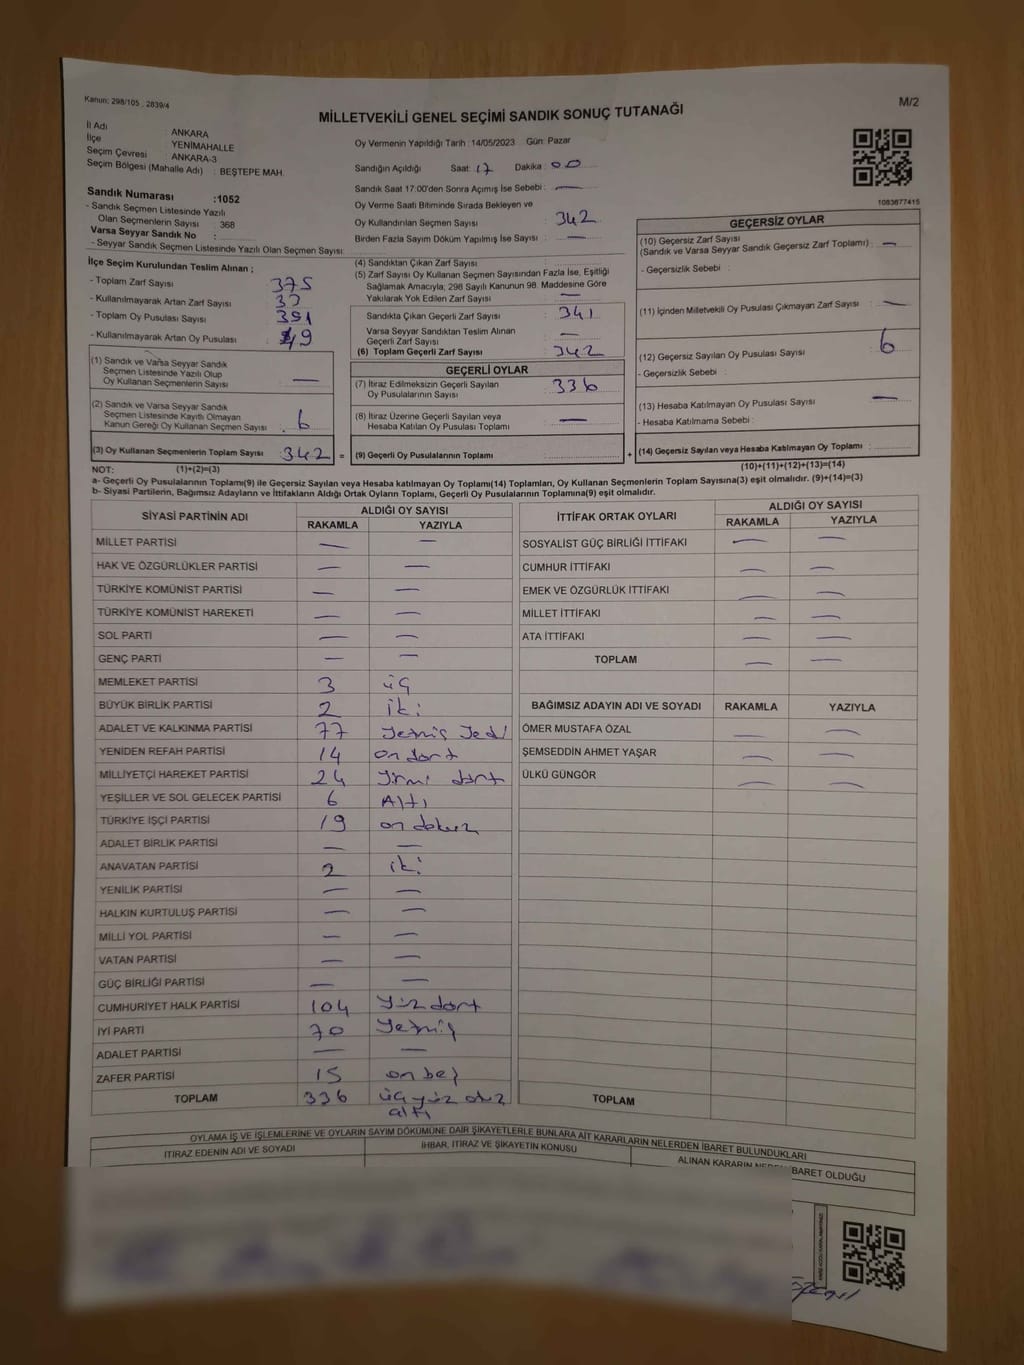 Kanun: 298/105 , 2839/4
M/2
MİLLETVEKİLİ GENEL SEÇİMİ SANDIK SONUÇ TUTANAĞI
İl Adı : ANKARA
İlçe : YENİMAHALLE
Seçim Çevresi : ANKARA-3
Seçim Bölgesi (Mahalle Adı) : BEŞTEPE MAH.
Sandık Numarası :1052
- Sandık Seçmen Listesinde Yazılı
Olan Seçmenlerin Sayısı : 368
Varsa Seyyar Sandık No :
- Seyyar Sandık Seçmen Listesinde Yazılı Olan Seçmen Sayısı:
Oy Vermenin Yapıldığı Tarih : 14/05/2023 Gün: Pazar
Sandığın Açıldığı Saat: 17 Dakika : 00
Sandık Saat 17:00'den Sonra Açımış İse Sebebi : —
Oy Verme Saati Bitiminde Sırada Bekleyen ve
Oy Kullandırılan Seçmen Sayısı : 342
Birden Fazla Sayım Döküm Yapılmış İse Sayısı : —
1083877415
İlçe Seçim Kurulundan Teslim Alınan ;
- Toplam Zarf Sayısı : 375
- Kullanılmayarak Artan Zarf Sayısı : 33
- Toplam Oy Pusulası Sayısı : 391
- Kullanılmayarak Artan Oy Pusulası : 49
(1) Sandık ve Varsa Seyyar Sandık
Seçmen Listesinde Yazılı Olup
Oy Kullanan Seçmenlerin Sayısı : —
(2) Sandık ve Varsa Seyyar Sandık
Seçmen Listesinde Kayıtlı Olmayan
Kanun Gereği Oy Kullanan Seçmen Sayısı : 6
(3) Oy Kullanan Seçmenlerin Toplam Sayısı : 342 =
(4) Sandıktan Çıkan Zarf Sayısı :
(5) Zarf Sayısı Oy Kullanan Seçmen Sayısından Fazla İse, Eşitliği
Sağlamak Amacıyla, 298 Sayılı Kanunun 98. Maddesine Göre
Yakılarak Yok Edilen Zarf Sayısı : —
Sandıkta Çıkan Geçerli Zarf Sayısı : 341
Varsa Seyyar Sandıktan Teslim Alınan
Geçerli Zarf Sayısı : —
(6) Toplam Geçerli Zarf Sayısı : 342
GEÇERLİ OYLAR
(7) İtiraz Edilmeksizin Geçerli Sayılan
Oy Pusulalarının Sayısı : 336
(8) İtiraz Üzerine Geçerli Sayılan veya
Hesaba Katılan Oy Pusulası Toplamı : —
(9) Geçerli Oy Pusulalarının Toplamı : +
GEÇERSİZ OYLAR
(10) Geçersiz Zarf Sayısı
(Sandık ve Varsa Seyyar Sandık Geçersiz Zarf Toplamı) : —
- Geçersizlik Sebebi :
(11) İçinden Milletvekili Oy Pusulası Çıkmayan Zarf Sayısı : —
(12) Geçersiz Sayılan Oy Pusulası Sayısı : 6
- Geçersizlik Sebebi :
(13) Hesaba Katılmayan Oy Pusulası Sayısı : —
- Hesaba Katılmama Sebebi :
(14) Geçersiz Sayılan veya Hesaba Katılmayan Oy Toplamı :
NOT: (1)+(2)=(3)
(10)+(11)+(12)+(13)=(14)
a- Geçerli Oy Pusulalarının Toplamı(9) ile Geçersiz Sayılan veya Hesaba katılmayan Oy Toplamı(14) Toplamları, Oy Kullanan Seçmenlerin Toplam Sayısına(3) eşit olmalıdır. (9)+(14)=(3)
b- Siyasi Partilerin, Bağımsız Adayların ve İttifakların Aldığı Ortak Oyların Toplamı, Geçerli Oy Pusulalarının Toplamına(9) eşit olmalıdır.
SİYASİ PARTİNİN ADI ALDIĞI OY SAYISI
RAKAMLA YAZIYLA
MİLLET PARTİSİ — —
HAK VE ÖZGÜRLÜKLER PARTİSİ — —
TÜRKİYE KOMÜNİST PARTİSİ — —
TÜRKİYE KOMÜNİST HAREKETİ — —
SOL PARTİ — —
GENÇ PARTİ — —
MEMLEKET PARTİSİ 3 üç
BÜYÜK BİRLİK PARTİSİ 2 iki
ADALET VE KALKINMA PARTİSİ 77 Yetmiş Yedi
YENİDEN REFAH PARTİSİ 14 on dört
MİLLİYETÇİ HAREKET PARTİSİ 24 Yirmi dört
YEŞİLLER VE SOL GELECEK PARTİSİ 6 Altı
TÜRKİYE İŞÇİ PARTİSİ 19 on dokuz
ADALET BİRLİK PARTİSİ — —
ANAVATAN PARTİSİ 2 iki
YENİLİK PARTİSİ — —
HALKIN KURTULUŞ PARTİSİ — —
MİLLİ YOL PARTİSİ — —
VATAN PARTİSİ — —
GÜÇ BİRLİĞİ PARTİSİ — —
CUMHURİYET HALK PARTİSİ 104 Yüz dört
İYİ PARTİ 70 Yetmiş
ADALET PARTİSİ — —
ZAFER PARTİSİ 15 on beş
TOPLAM 336 üç yüz otuz
altı
İTTİFAK ORTAK OYLARI ALDIĞI OY SAYISI
RAKAMLA YAZIYLA
SOSYALİST GÜÇ BİRLİĞİ İTTİFAKI — —
CUMHUR İTTİFAKI — —
EMEK VE ÖZGÜRLÜK İTTİFAKI — —
MİLLET İTTİFAKI — —
ATA İTTİFAKI — —
TOPLAM — —
BAĞIMSIZ ADAYIN ADI VE SOYADI RAKAMLA YAZIYLA
ÖMER MUSTAFA ÖZAL — —
ŞEMSEDDİN AHMET YAŞAR — —
ÜLKÜ GÜNGÖR — —
TOPLAM
OYLAMA İŞ VE İŞLEMLERİNE VE OYLARIN SAYIM DÖKÜMÜNE DAİR ŞİKAYETLERLE BUNLARA AİT KARARLARIN NELERDEN İBARET BULUNDUKLARI
İTİRAZ EDENİN ADI VE SOYADI İHBAR, İTİRAZ VE ŞİKAYETİN KONUSU ALINAN KARARIN NEDEN İBARET OLDUĞU